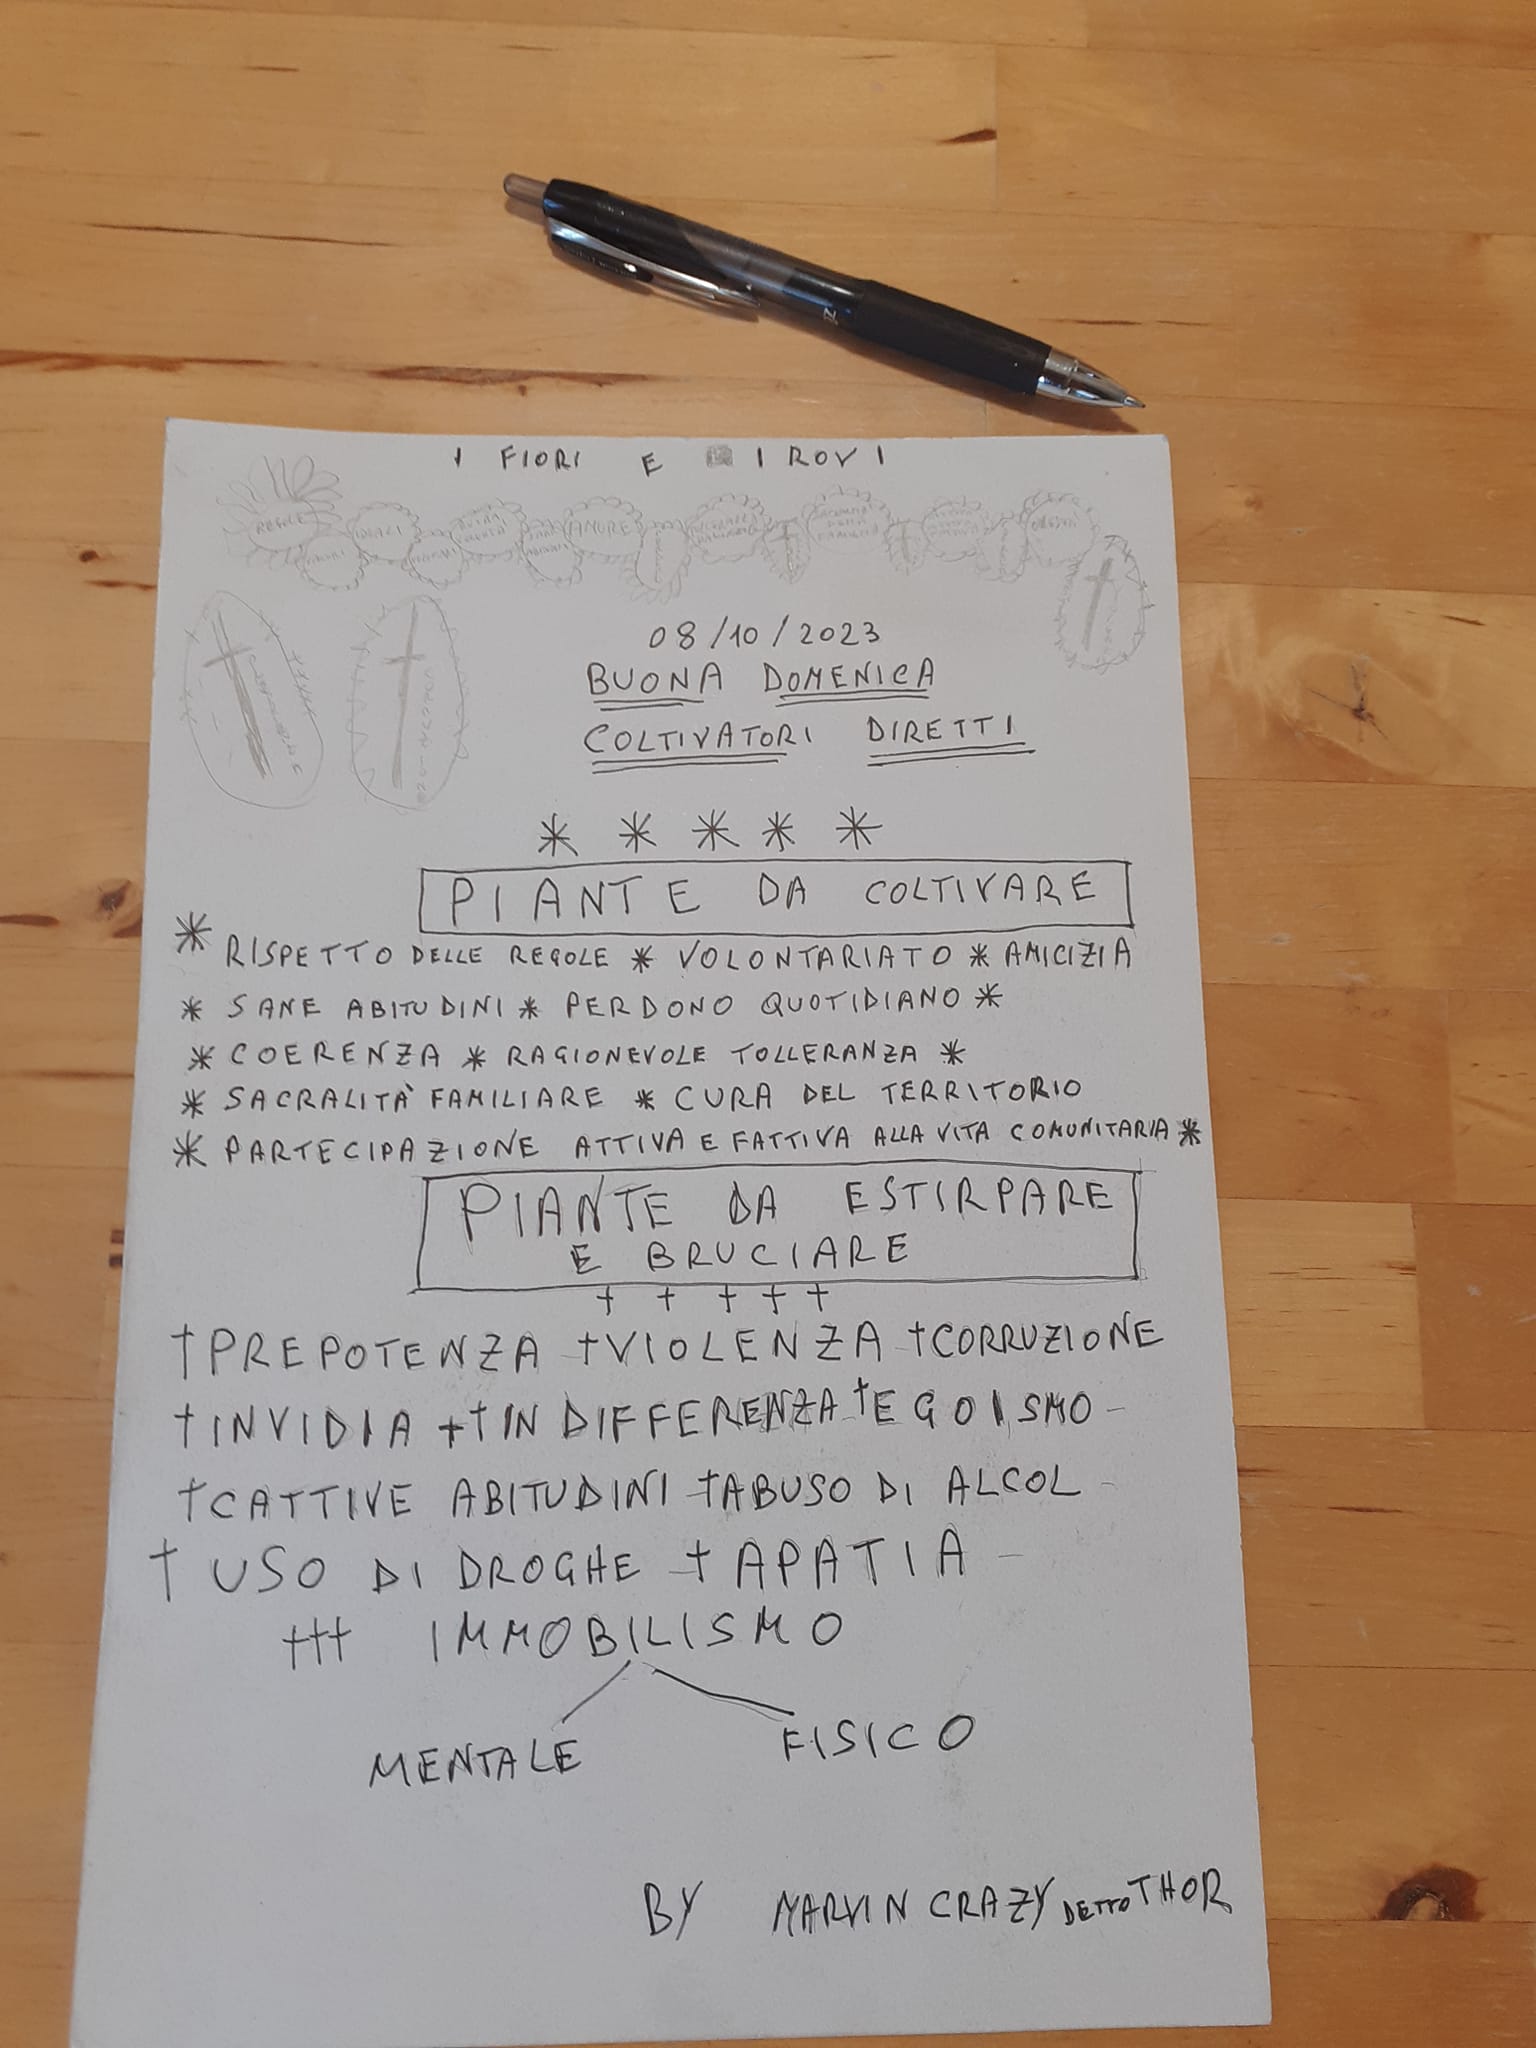 I FIORI E I ROVI
REGOLE
AMORE
08/10/2023
BUONA DOMENICA
COLTIVATORI DIRETTI
* * * * *
PIANTE DA COLTIVARE
* RISPETTO DELLE REGOLE * VOLONTARIATO * AMICIZIA
* SANE ABITUDINI * PERDONO QUOTIDIANO *
* COERENZA * RAGIONEVOLE TOLLERANZA *
* SACRALITÀ FAMILIARE * CURA DEL TERRITORIO
* PARTECIPAZIONE ATTIVA E FATTIVA ALLA VITA COMUNITARIA *
PIANTE DA ESTIRPARE
E BRUCIARE
† † † † †
† PREPOTENZA † VIOLENZA † CORRUZIONE
† INVIDIA + † INDIFFERENZA † EGOISMO -
† CATTIVE ABITUDINI † ABUSO DI ALCOL -
† USO DI DROGHE † APATIA -
††† IMMOBILISMO
MENTALE FISICO
BY MARVIN CRAZY DETTO THOR